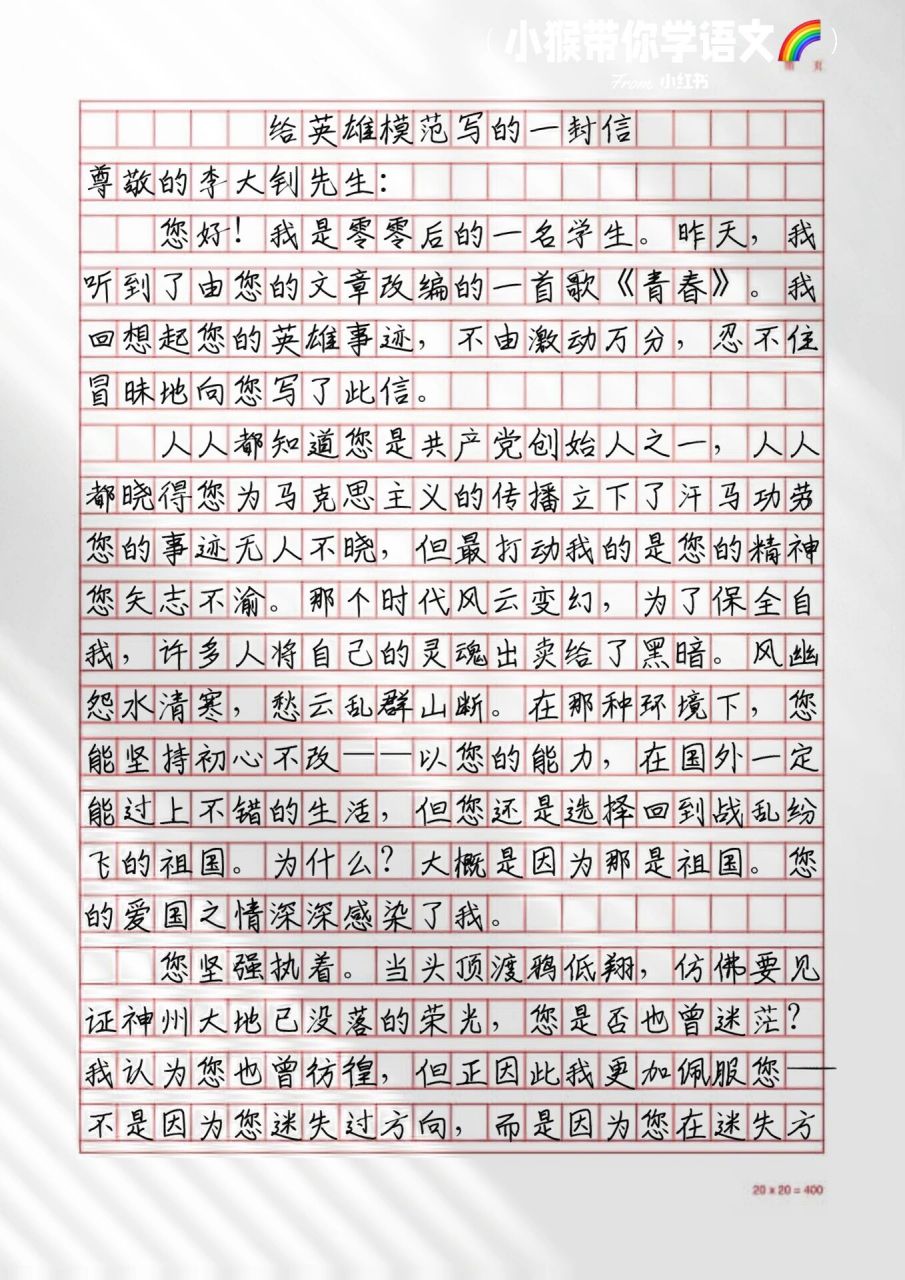 小猴带你学语文
From 小红书
页
给英雄模范写的一封信
尊敬的李大钊先生：
您好！我是零零后的一名学生。昨天，我
听到了由您的文章改编的一首歌《青春》。我
回想起您的英雄事迹，不由激动万分，忍不住
冒昧地向您写了此信。
人人都知道您是共产党创始人之一，人人
都晓得您为马克思主义的传播立下了汗马功劳
您的事迹无人不晓，但最打动我的是您的精神
您矢志不渝。那个时代风云变幻，为了保全自
我，许多人将自己的灵魂出卖给了黑暗。风幽
怨水清寒，愁云乱群山断。在那种环境下，您
能坚持初心不改——以您的能力，在国外一定
能过上不错的生活，但您还是选择回到战乱纷
飞的祖国。为什么？大概是因为那是祖国。您
的爱国之情深深感染了我。
您坚强执着。当头顶渡鸦低翔，仿佛要见
证神州大地已没落的荣光，您是否也曾迷茫？
我认为您也曾彷徨，但正因此我更加佩服您——
不是因为您迷失过方向，而是因为您在迷失方
20 x 20 = 400